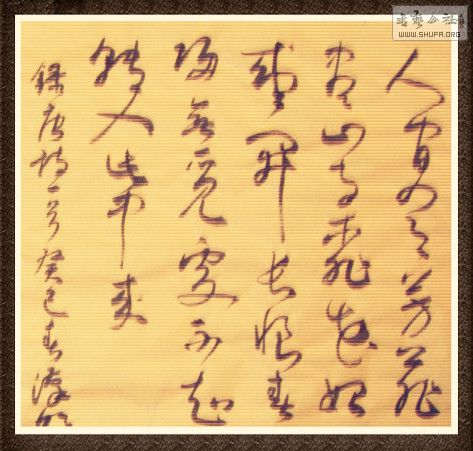 书艺公社
WWW.SHUFA.ORG
人间四月芳菲
尽山寺桃花始
盛开长恨春
归无觅处不知
转入此中来
录唐诗一首癸巳春